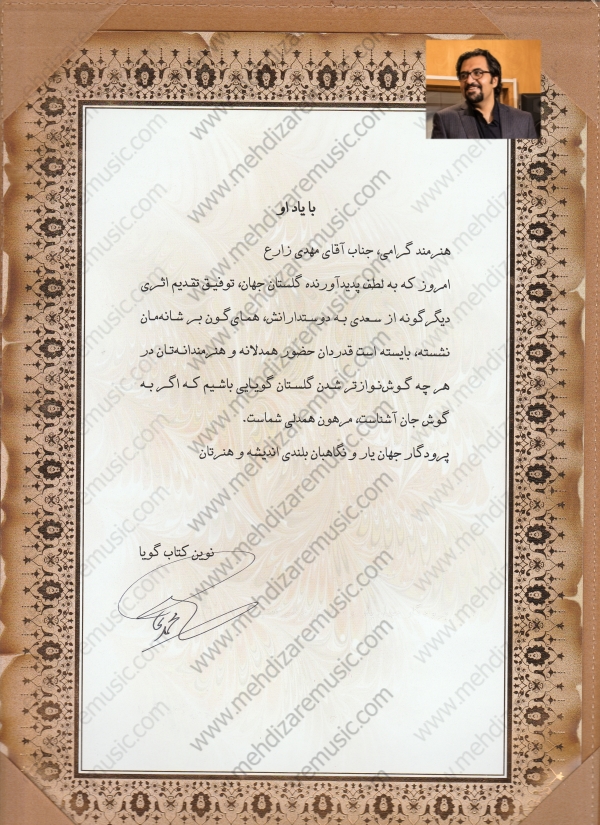 با یاد او
هنرمند گرامی، جناب آقای مهدی زارع
امروز که به لطف پدیدآورنده گلستان جهان، توفیق تقدیم اثری
دیگرگونه از سعدی به دوستدارانش، همای‌گون بر شانه‌مان
نشسته، بایسته است قدردان حضور همدلانه و هنرمندانه‌تان در
هر چه گوش‌نوازتر شدن گلستان گویایی باشیم که اگر به
گوش جان آشناست، مرهون همدلی شماست.
پرودگار جهان یار و نگاهبان بلندی اندیشه و هنرتان
نوین کتاب گویا
www.mehdizaremusic.com